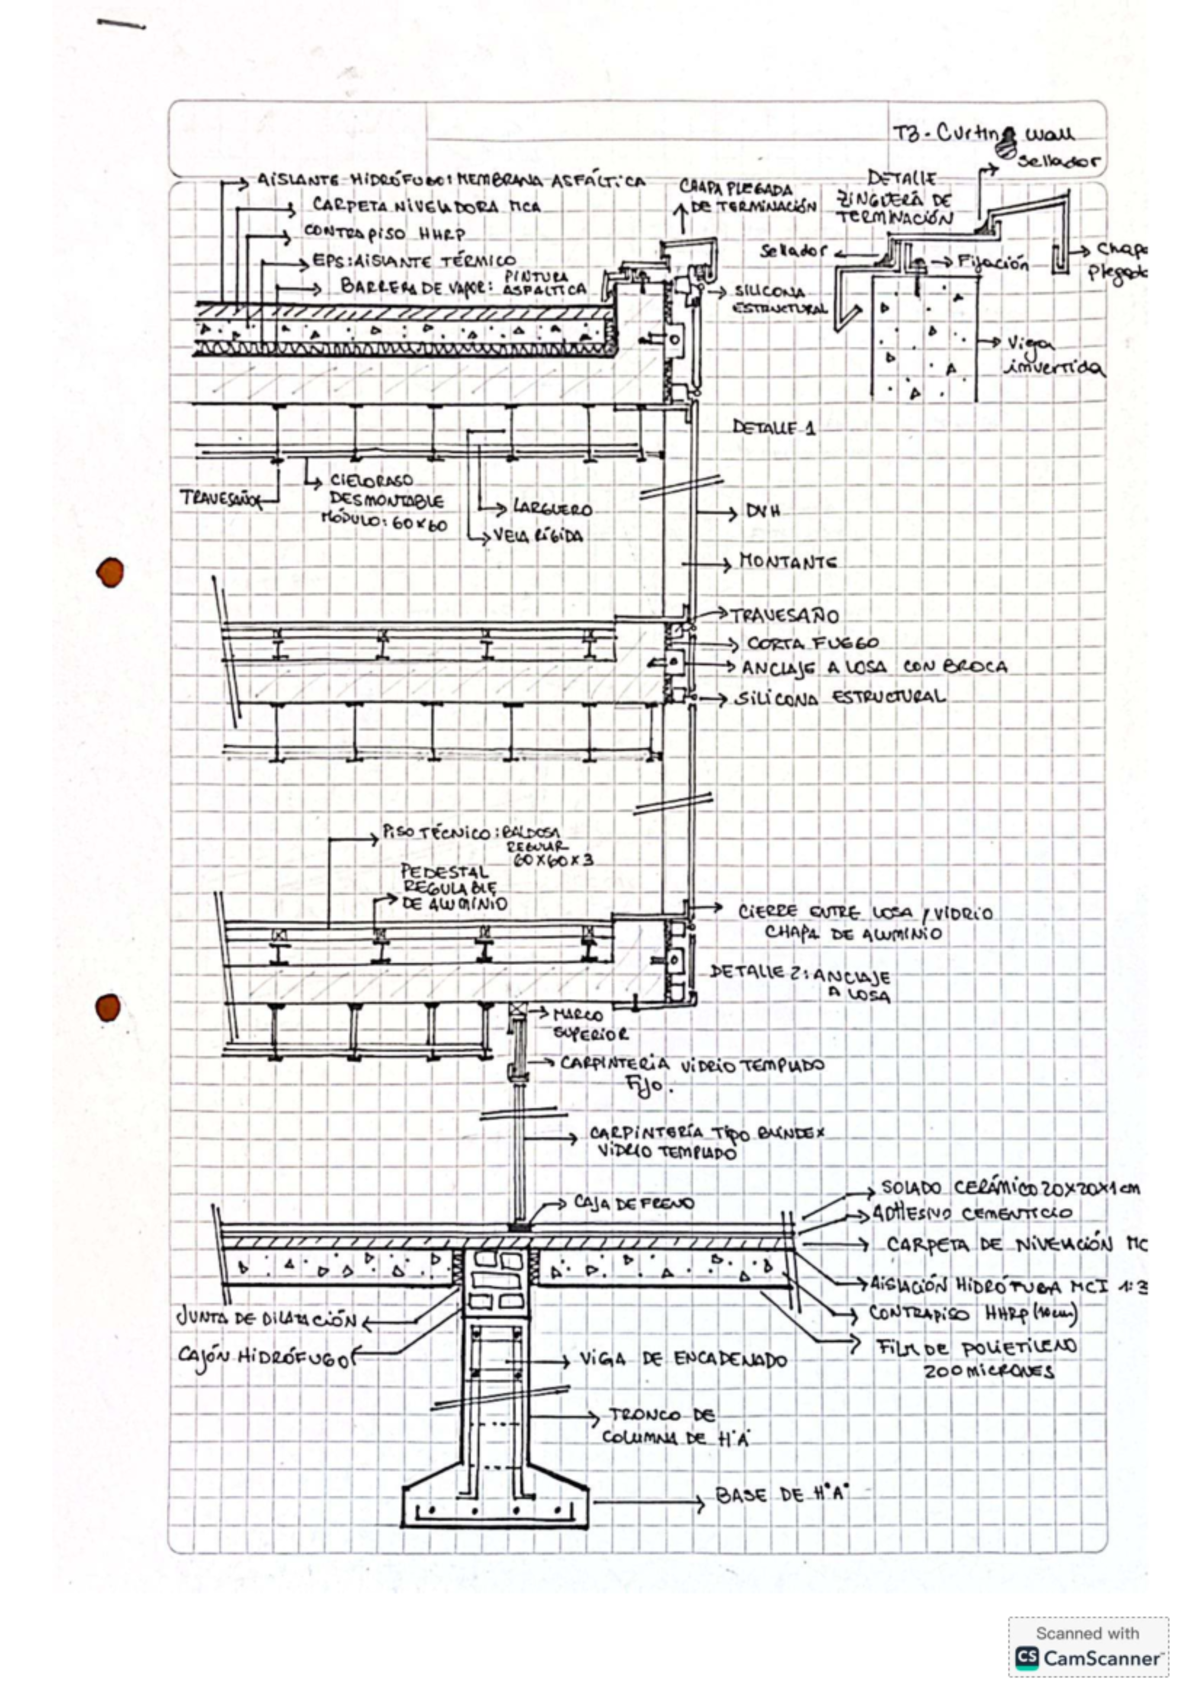 T3 - Curting wall
Sellador
AISLANTE HIDRÓFUGO: MEMBRANA ASFÁLTICA
CARPETA NIVELADORA MCA
CONTRAPISO HHRP
EPS: AISLANTE TÉRMICO
BARRERA DE VAPOR: PINTURA
ASFALTICA
CHAPA PLEGADA
DE TERMINACIÓN
DETALLE
ZINGUERÍA DE
TERMINACIÓN
Sellador
Fijación
Chapa
plegada
SILICONA
ESTRUCTURAL
Viga
invertida
DETALLE 1
TRAVESAÑO
CIELORASO
DESMONTABLE
MÓDULO: 60x60
LARGUERO
VELA RÍGIDA
DVH
MONTANTE
TRAVESAÑO
CORTA FUEGO
ANCLAJE A LOSA CON BROCA
SILICONA ESTRUCTURAL
PISO TÉCNICO: BALDOSA
REGULAR
60x60x3
PEDESTAL
REGULABLE
DE ALUMINIO
CIERRE ENTRE LOSA / VIDRIO
CHAPA DE ALUMINIO
DETALLE 2: ANCLAJE
A LOSA
MARCO
SUPERIOR
CARPINTERIA VIDRIO TEMPLADO
FIJO.
CARPINTERÍA TIPO BLINDEX
VIDRIO TEMPLADO
CAJA DE FRENO
SOLADO CERÁMICO 20x20x1cm
ADHESIVO CEMENTICIO
CARPETA DE NIVELACIÓN MC
AISLACIÓN HIDRÓFUGA MCI 1:3
CONTRAPISO HHRP (10cm)
FILM DE POLIETILENO
200 MICRONES
JUNTA DE DILATACIÓN
CAJÓN HIDRÓFUGO
VIGA DE ENCADENADO
TRONCO DE
COLUMNA DE H°A°
BASE DE H°A°
Scanned with
CS CamScanner